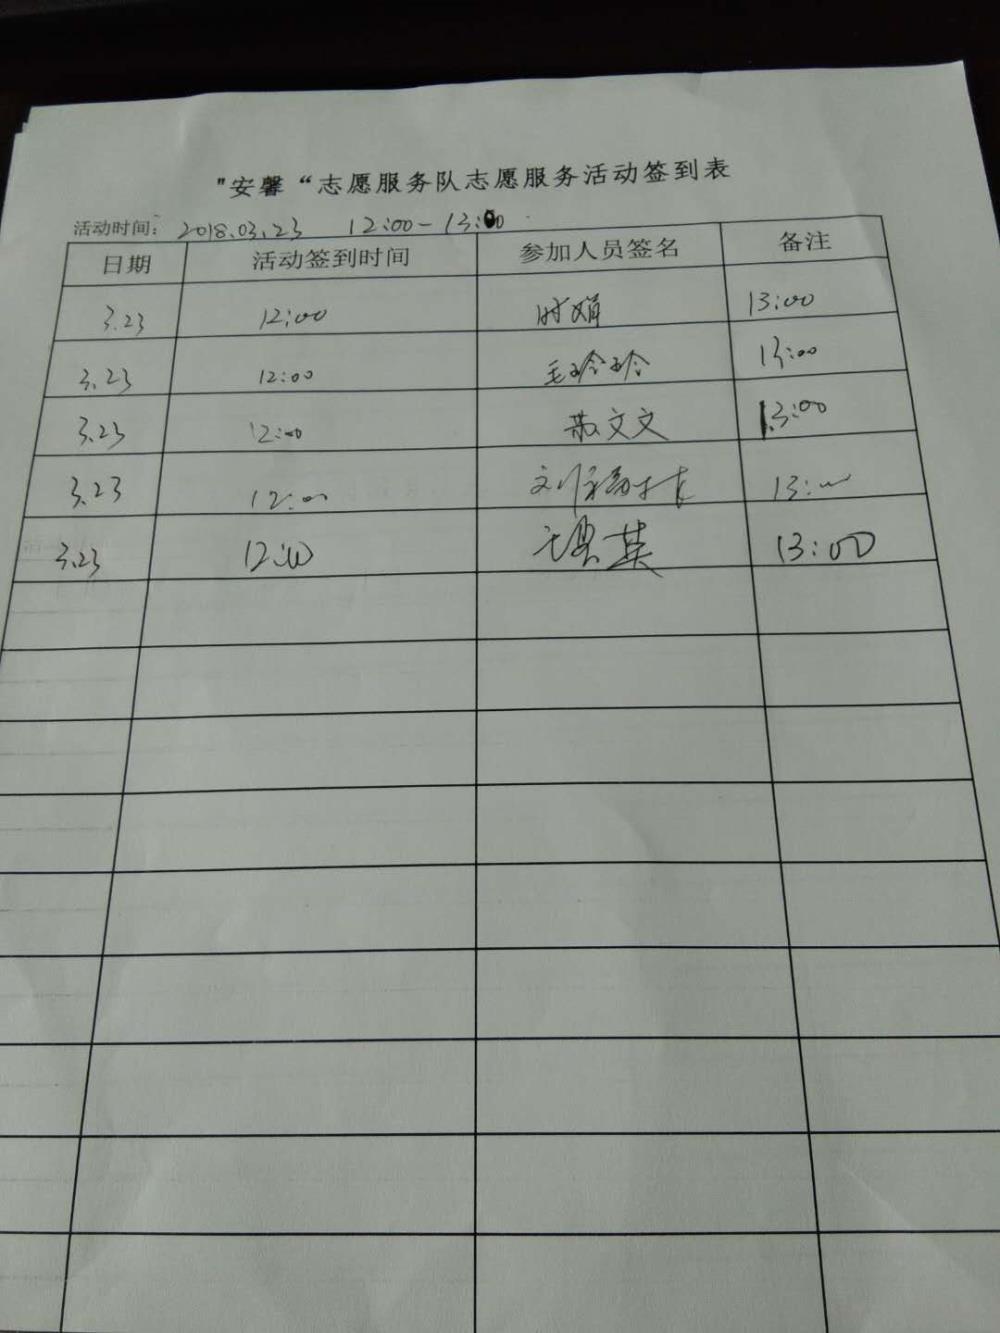 "安馨“志愿服务队志愿服务活动签到表
活动时间： 2018.03.23 12:00-13:00
日期 活动签到时间 参加人员签名 备注
3.23 12:00 时娟 13:00
3.23 12:00 毛玲玲 13:00
3.23 12:00 文文 13:00
3.23 12:00 刘 13:00
3.23 12:00 英 13:00